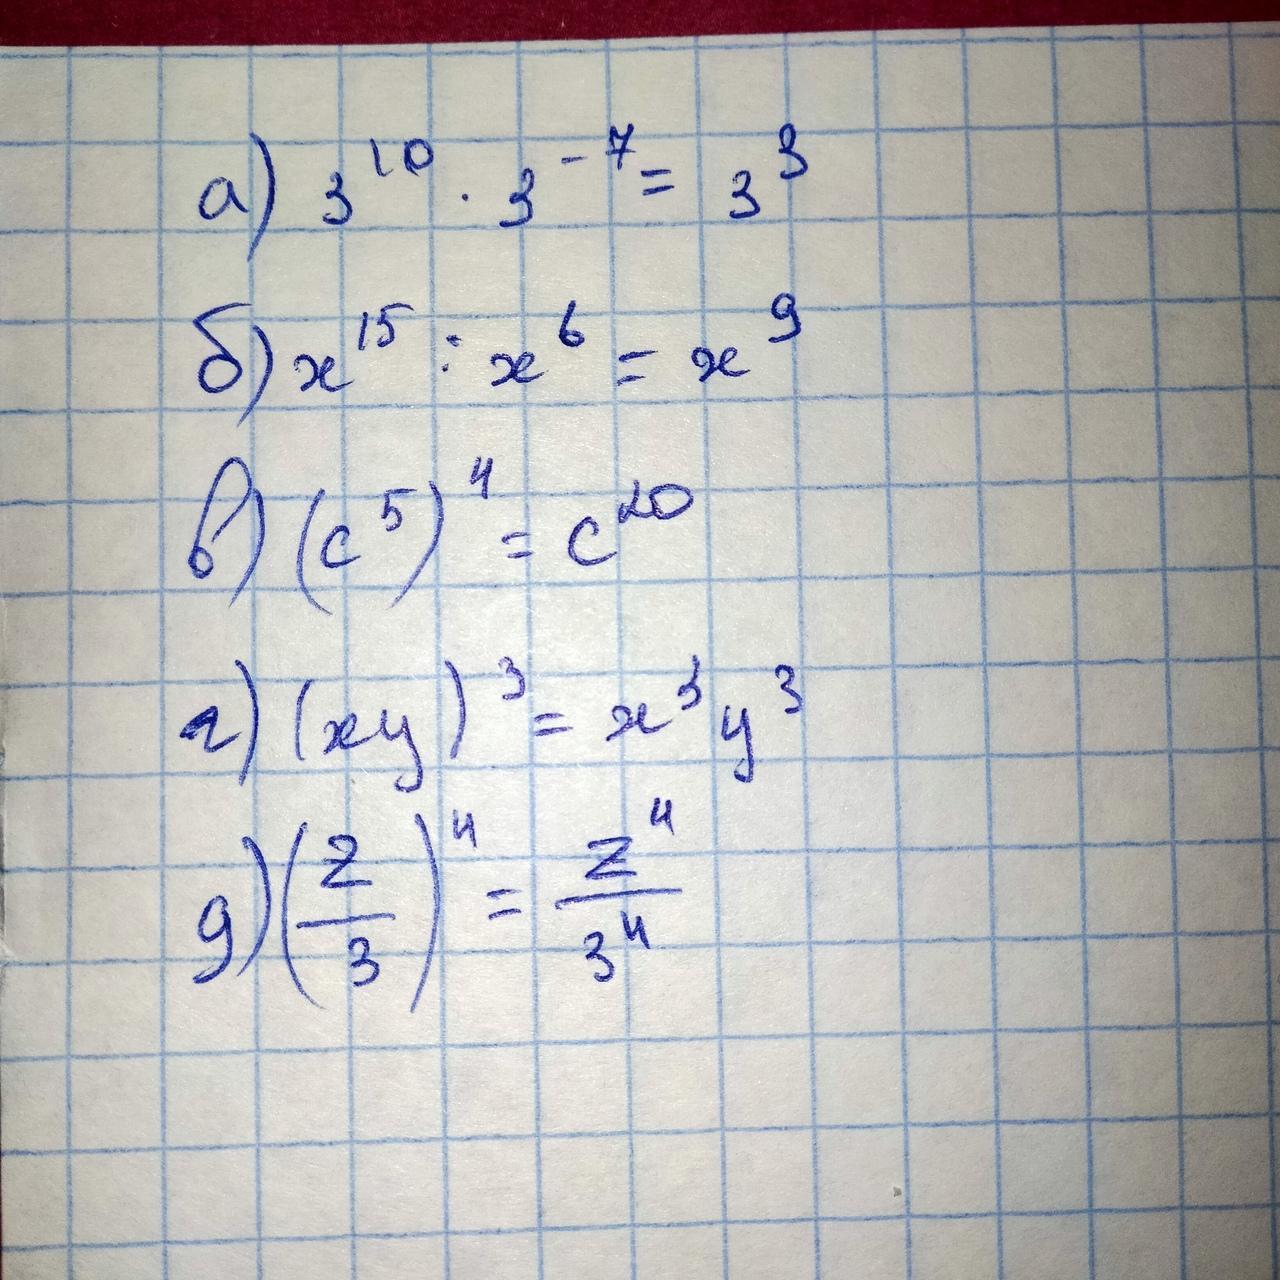 а) 3^10 · 3^-7 = 3^3
б) x^15 : x^6 = x^9
в) (c^5)^4 = c^20
г) (xy)^3 = x^3 y^3
д) (z/3)^4 = z^4/3^4